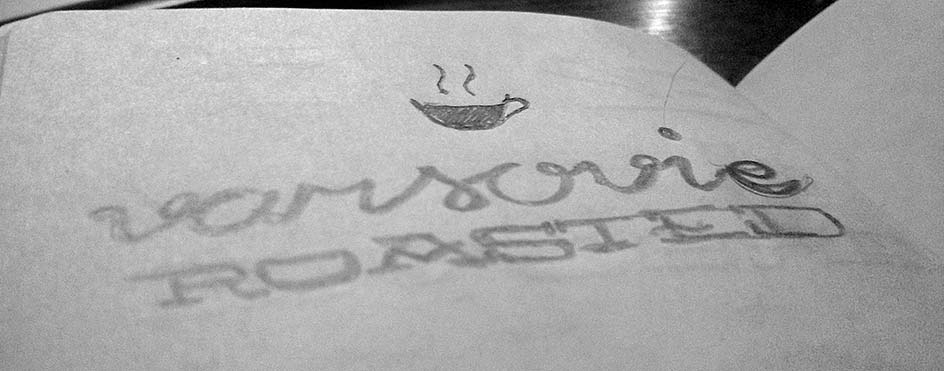 varsovie
ROASTED